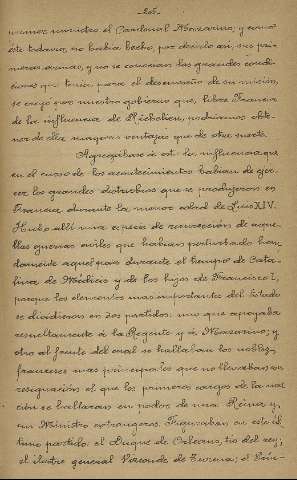 -205-
primer ministro el Cardenal Mazarino; y como
éste todavía no había hecho, por decirlo así, sus pri-
meras armas, y no se conocían las grandes condi-
ciones que tenía para el desempeño de su misión,
se creyó por nuestro gobierno que, libre Francia
de la influencia de Richelieu, podríamos obte-
ner de ella mayores ventajas que de otra suerte.
Agregábase á esto la influencia que
en el curso de los acontecimientos habían de ejer-
cer los grandes disturbios que se produjeron en
Francia durante la menor edad de Luis XIV.
Hubo allí una especie de resurrección de aque-
llas guerras civiles que habían perturbado hon-
damente aquel país durante el tiempo de Cata-
lina de Médicis y de los hijos de Francisco I,
porque los elementos más importantes del Estado
se dividieron en dos partidos: uno que apoyaba
resueltamente á la Regente y á Mazarino; y
otro al frente del cual se hallaban los nobles
franceses más principales que no llevaban con
resignación el que los primeros cargos de la na-
ción se hallaran en poder de una Reina y
un Ministro extranjeros. Figuraban en este úl-
timo partido: el Duque de Orleans, tío del rey;
el ilustre general Vizconde de Turena; el Prín-